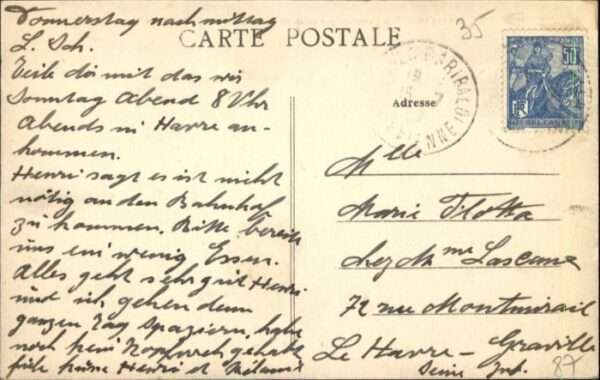 Donnerstag nachmittag
L. Sch.
Teile dir mit das wir
Sonntag Abend 8 Uhr
Abends in Havre an-
kommen.
Henri sagt es ist nicht
nötig an den Bahnhof
zu kommen. Bitte bereite
uns ein wenig Essen.
Alles geht sehr gut Henri
und ich gehen den
ganzen Tag spazieren, habe
noch kein Kopfweh gehabt
Henri et
CARTE POSTALE
35
GARIBALDI
VIENNE
50
Adresse
Mlle
Marie
chez Mme Lascane
72 rue Montmirail
Le Havre - Graville
Seine Inf.
87